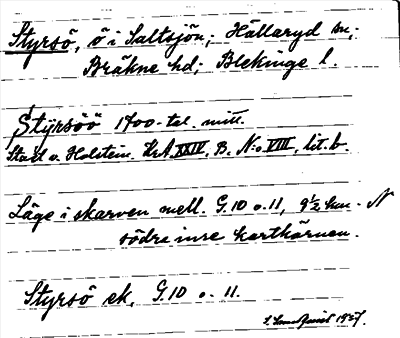 Styrsö, ö i Saltsjön; Hällaryd sn;
Bräkne hd; Blekinge l.
Stÿrsöö 1700-tal. mitt.
Stael v. Holstein. KrA XXIV, B. N:o VIII, lit. b.
Läge i skarven mell. G.10 o. 11, 9½ km. N
södra inre kartkärnen.
Styrsö ek. G.10 o. 11.
1927.